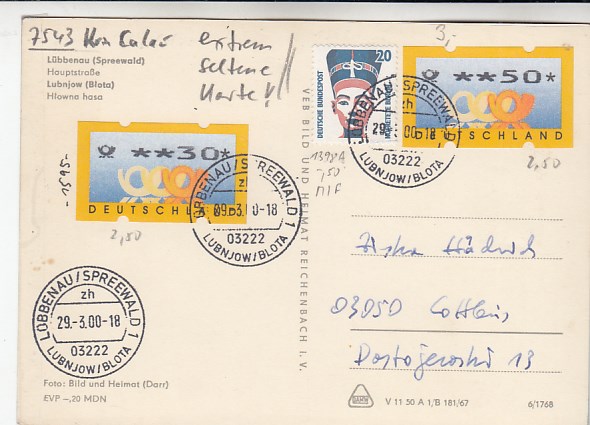 7543
extrem
seltene
Karte!!
3,-
Lübbenau (Spreewald)
Hauptstraße
Lubnjow (Błota)
Hłowna hasa
**30*
DEUTSCHLAND
-1595-
2,50
20
DEUTSCHE BUNDESPOST
1398A
-,50
MIF
**50*
DEUTSCHLAND
2,50
LÜBBENAU/SPREEWALD 1
zh
29.-3.00-18
03222
LUBNJOW/BLOTA
LÜBBENAU/SPREEWALD 1
zh
29.-3.00-18
03222
LUBNJOW/BLOTA
LÜBBENAU/SPREEWALD 1
zh
29.-3.00-18
03222
LUBNJOW/BLOTA
VEB BILD UND HEIMAT REICHENBACH I. V.
03050 Cottbus
Dostojewski 13
Foto: Bild und Heimat (Darr)
EVP -,20 MDN
V 11 50 A 1/B 181/67
6/1768